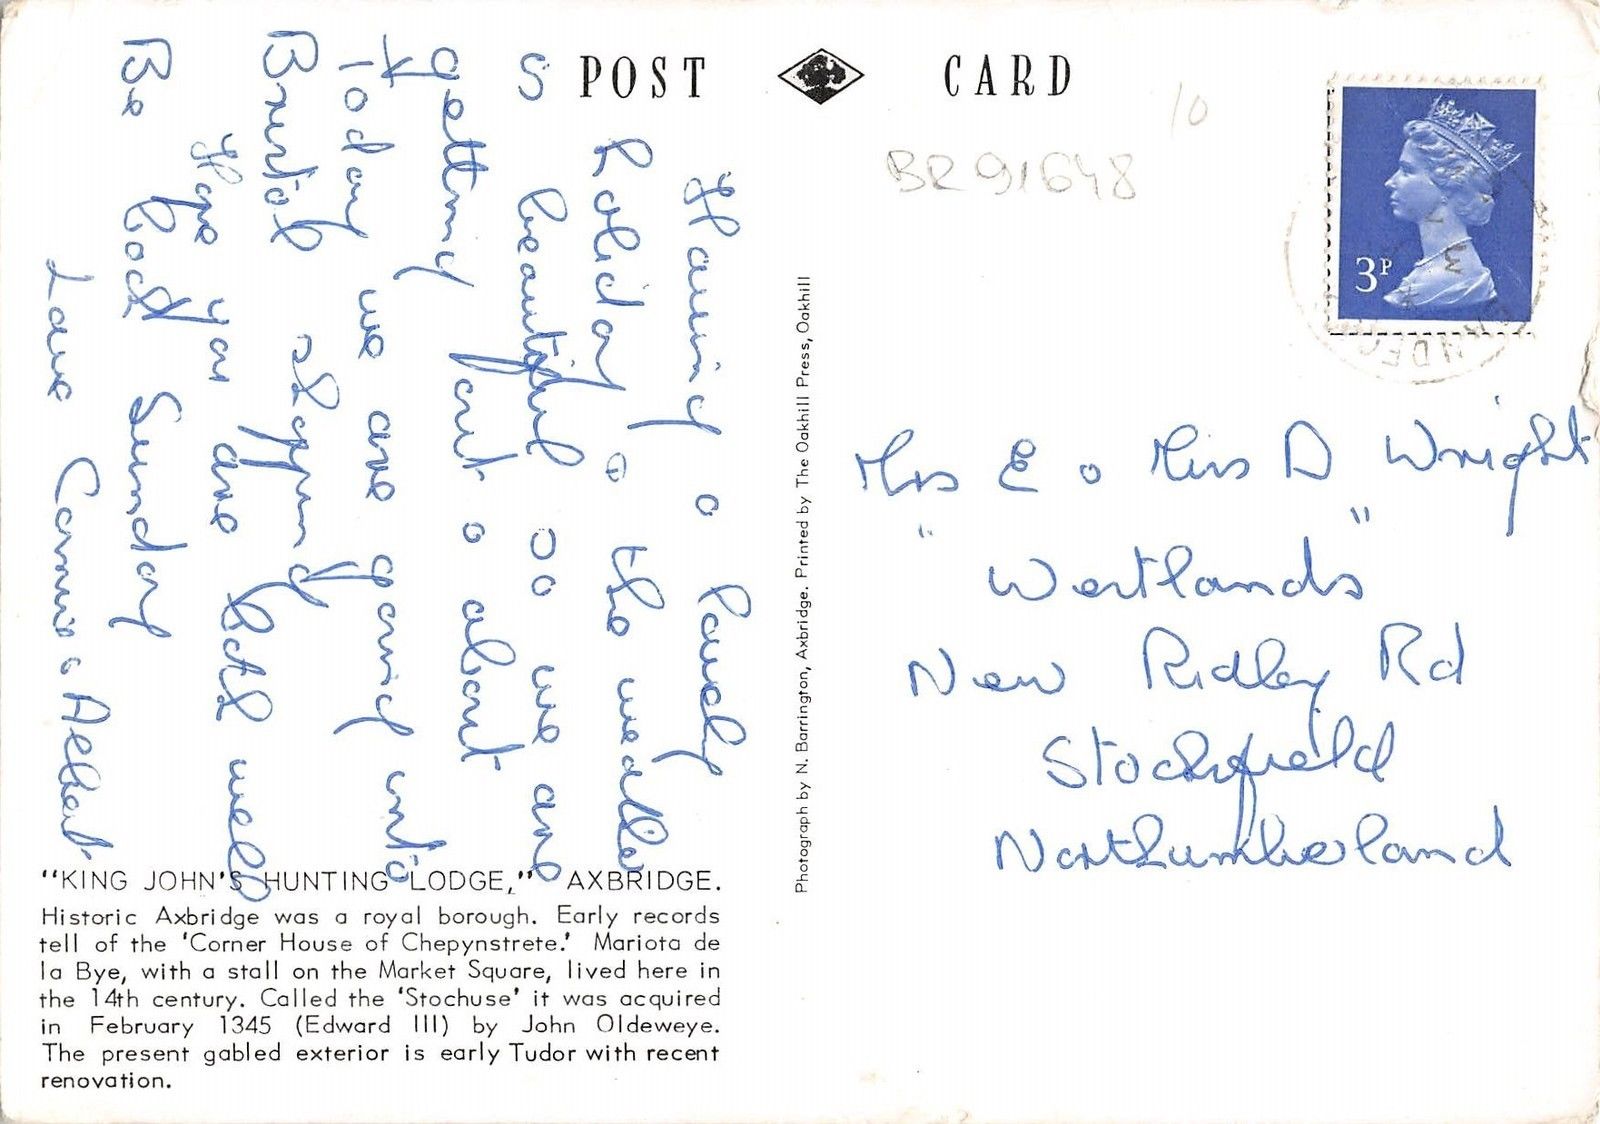 POST CARD
10
BR 91648
3P
Having a lovely
holiday & the weather
s beautiful so we are
getting out & about
Today we are going into
Bristol shopping
Hope you are both well
Be back Sunday
Love Connie & Albert
Mrs E & Miss D Wright
"Westlands"
New Ridley Rd
Stocksfield
Northumberland
Photograph by N. Barrington, Axbridge. Printed by The Oakhill Press, Oakhill
"KING JOHN'S HUNTING LODGE," AXBRIDGE.
Historic Axbridge was a royal borough. Early records
tell of the 'Corner House of Chepynstrete.' Mariota de
la Bye, with a stall on the Market Square, lived here in
the 14th century. Called the 'Stochuse' it was acquired
in February 1345 (Edward III) by John Oldeweye.
The present gabled exterior is early Tudor with recent
renovation.